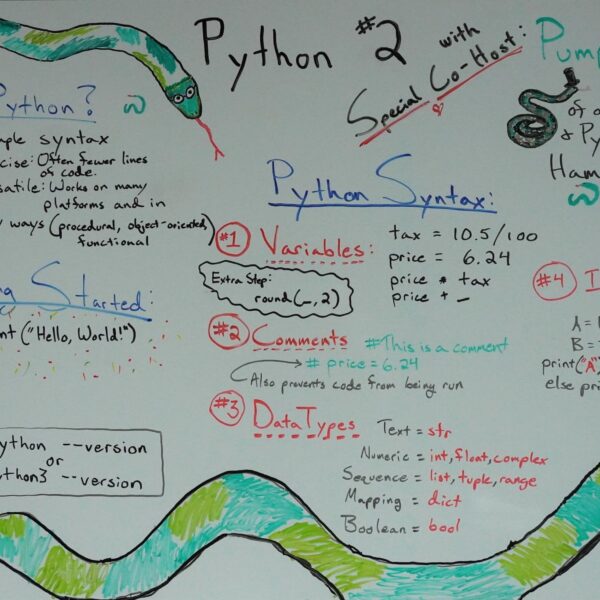 Python #2
with
Special Co-Host:
Pump
Python?
ple syntax
cise: Often fewer lines
of code.
satile: Works on many
platforms and in
ways (procedural, object-oriented,
functional)
g Started:
nt ("Hello, World!")
ython --version
or
ython3 --version
Python Syntax:
#1 Variables:
tax = 10.5/100
price = 6.24
price * tax
price + _
Extra Step:
round(_, 2)
#2 Comments
#This is a comment
# price = 6.24
Also prevents code from being run
#3 DataTypes
Text = str
Numeric = int, float, complex
Sequence = list, tuple, range
Mapping = dict
Boolean = bool
of
& Py
Ham
#4 I
A =
B =
print("A")
else pri